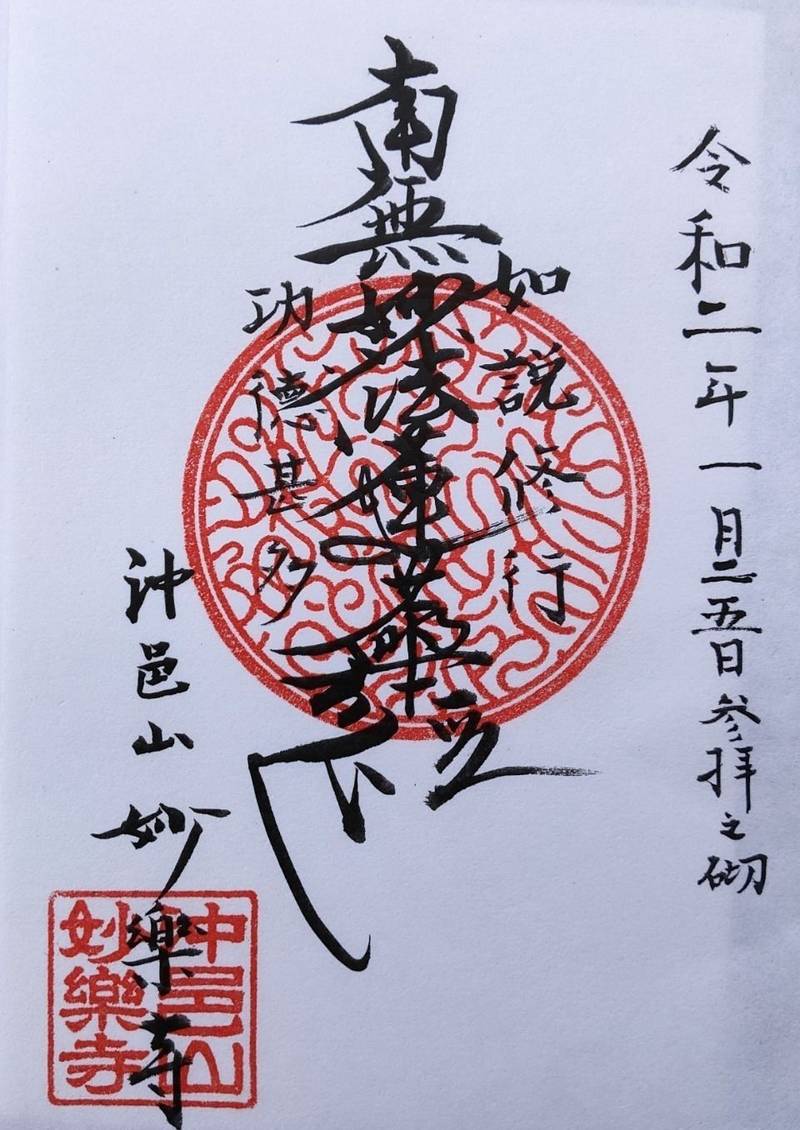 令和二年一月二五日参拝之砌
如説修行
南無妙法蓮華経
功徳甚多
沖邑山妙樂寺
沖邑山
妙樂寺